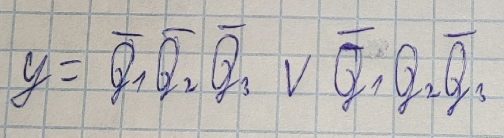 y = Q̄₁ Q̄₂ Q̄₃ ∨ Q̄₁ Q₂ Q̄₃